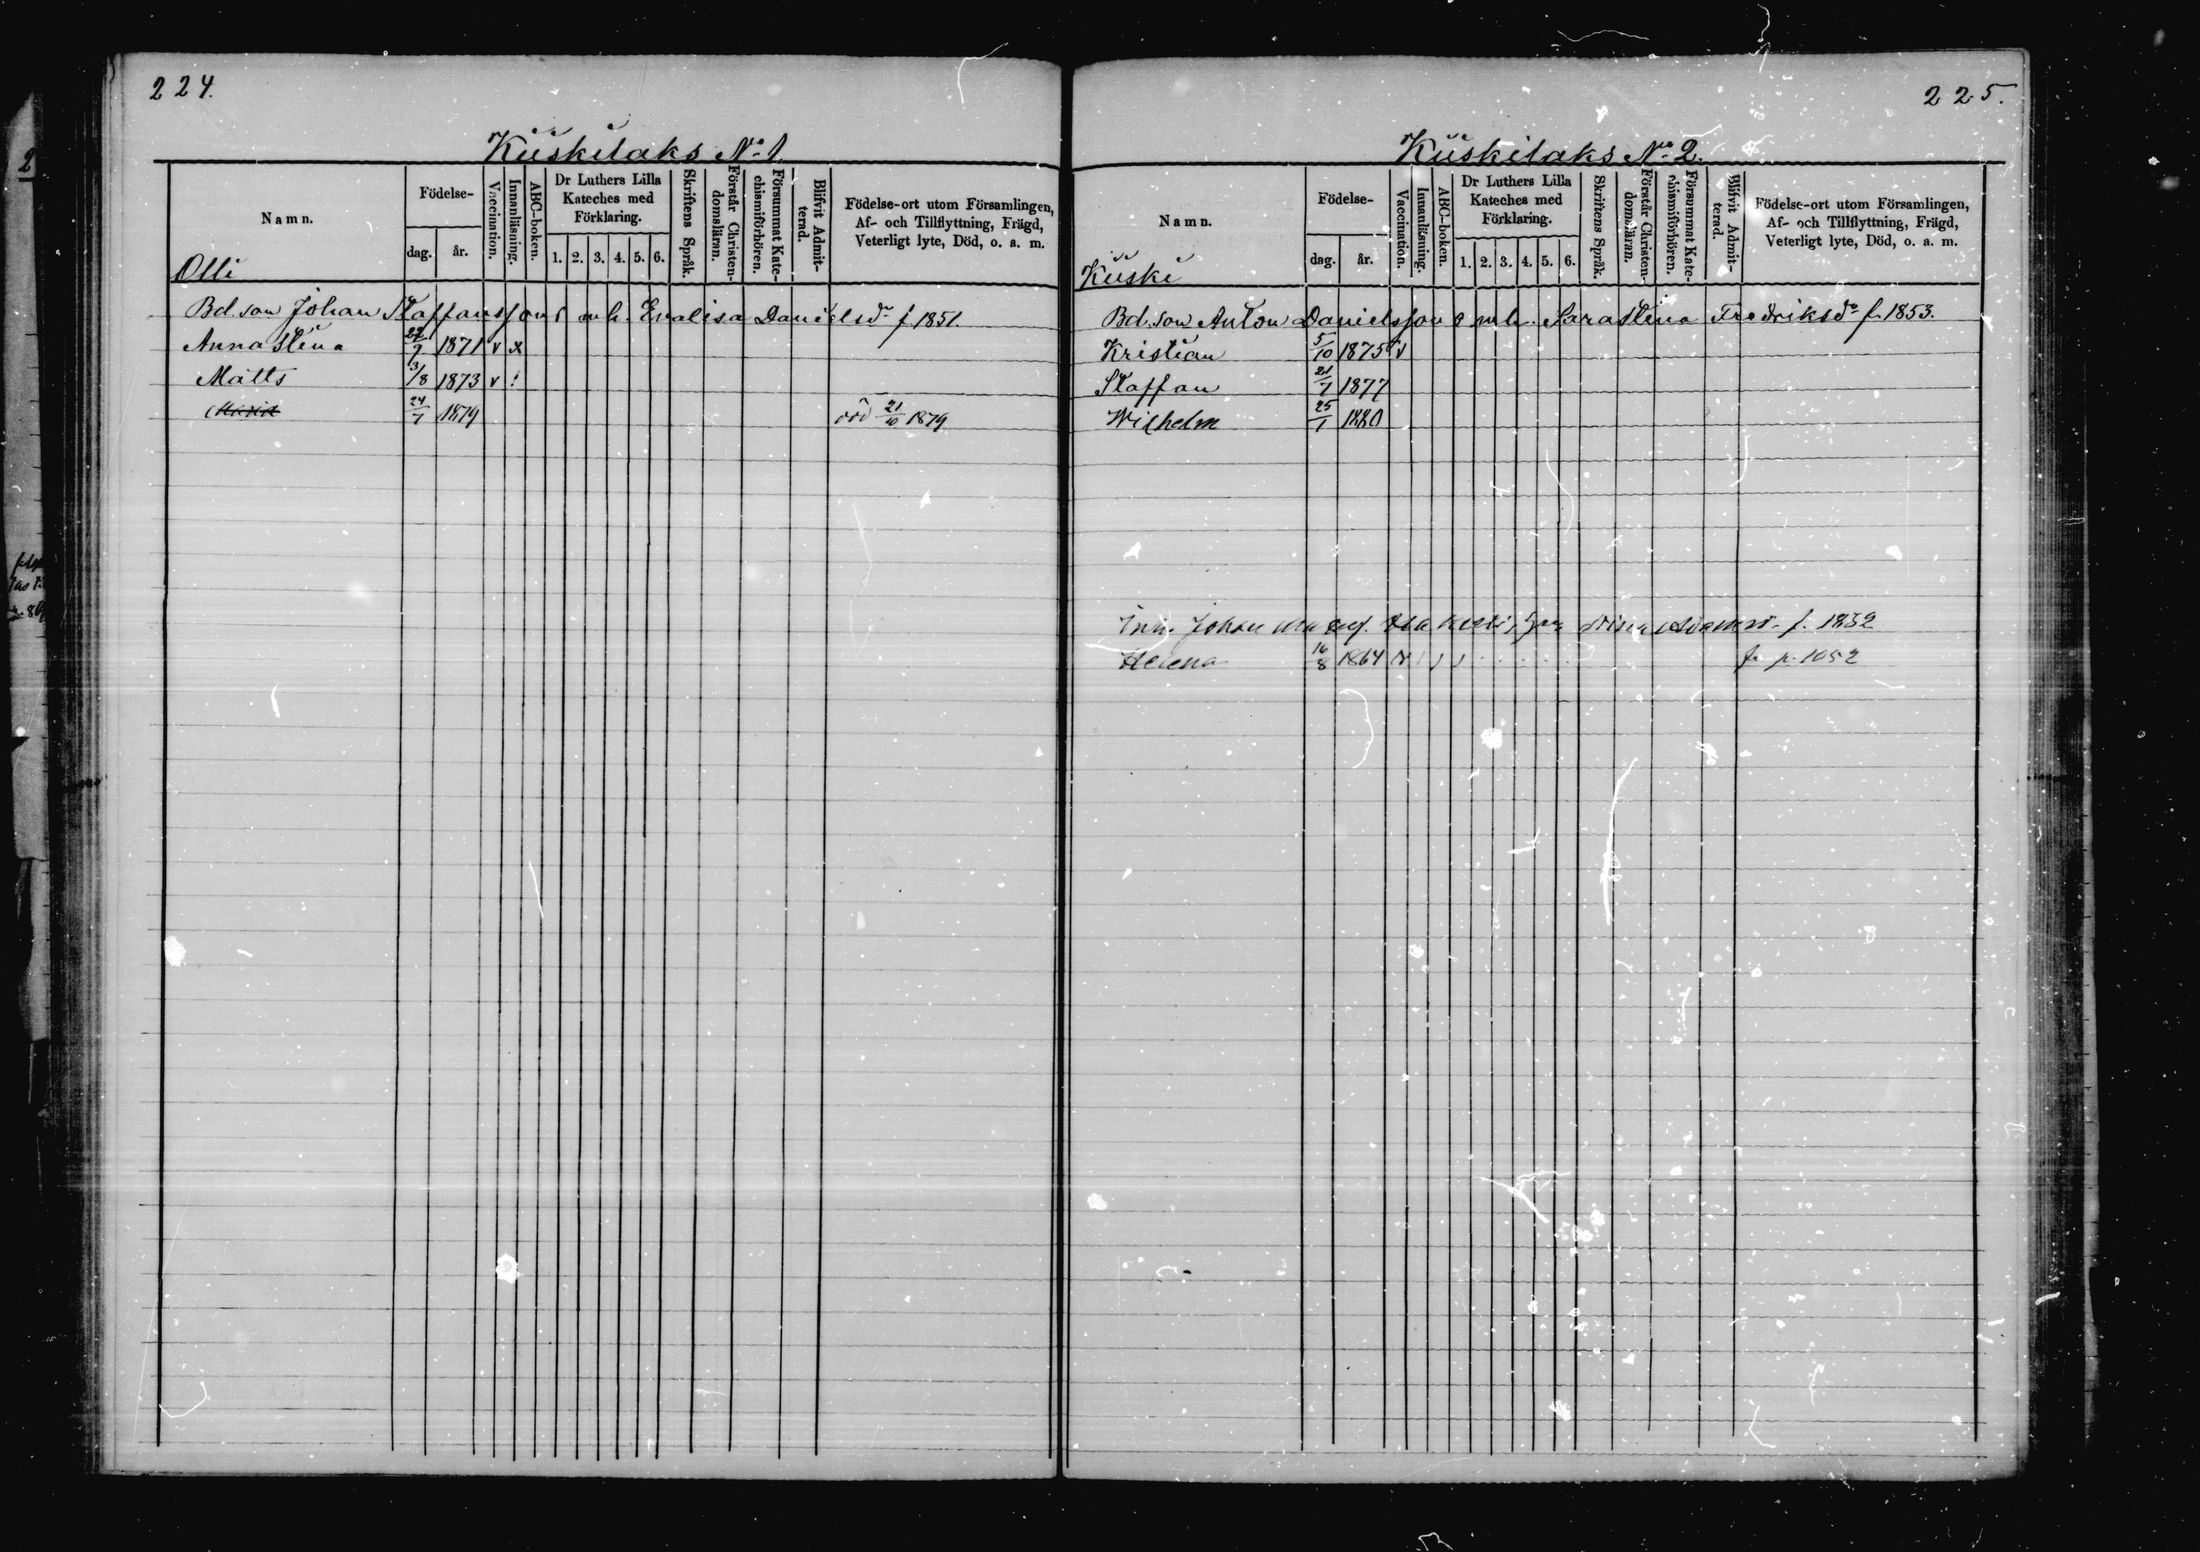 224.
Kuskilaks No 1
Namn.
Födelse-
dag. år.
Vaccination.
Innanläsning.
ABC-boken.
Dr Luthers Lilla
Kateches med
Förklaring.
1. 2. 3. 4. 5. 6.
Skriftens Språk.
Förstår Christen-
domsläran.
Försummat Kate-
chismiförhören.
Blifvit Admit-
terad.
Födelse-ort utom Församlingen,
Af- och Tillflyttning, Frägd,
Veterligt lyte, Död, o. a. m.
Olli
Bd. son Johan Staffansson o mh. Evalisa Danielsdr f 1851.
Anna Stina 22/9 1871 v x
Matts 3/8 1873 v
24/7 1879 död 21/10 1879
225.
Kuskilaks No 2.
Namn.
Födelse-
dag. år.
Vaccination.
Innanläsning.
ABC-boken.
Dr Luthers Lilla
Kateches med
Förklaring.
1. 2. 3. 4. 5. 6.
Skriftens Språk.
Förstår Christen-
domsläran.
Försummat Kate-
chismiförhören.
Blifvit Admit-
terad.
Födelse-ort utom Församlingen,
Af- och Tillflyttning, Frägd,
Veterligt lyte, Död, o. a. m.
Kuski
Bd. son Anton Danielsson o mh. Sara Stina Fredriksdr f. 1853.
Kristian 5/10 1875 v
Staffan 21/7 1877
Wilhelm 25/1 1880
Inh. Johan f. 1832
Helena 16/8 1864 fr. p. 1052